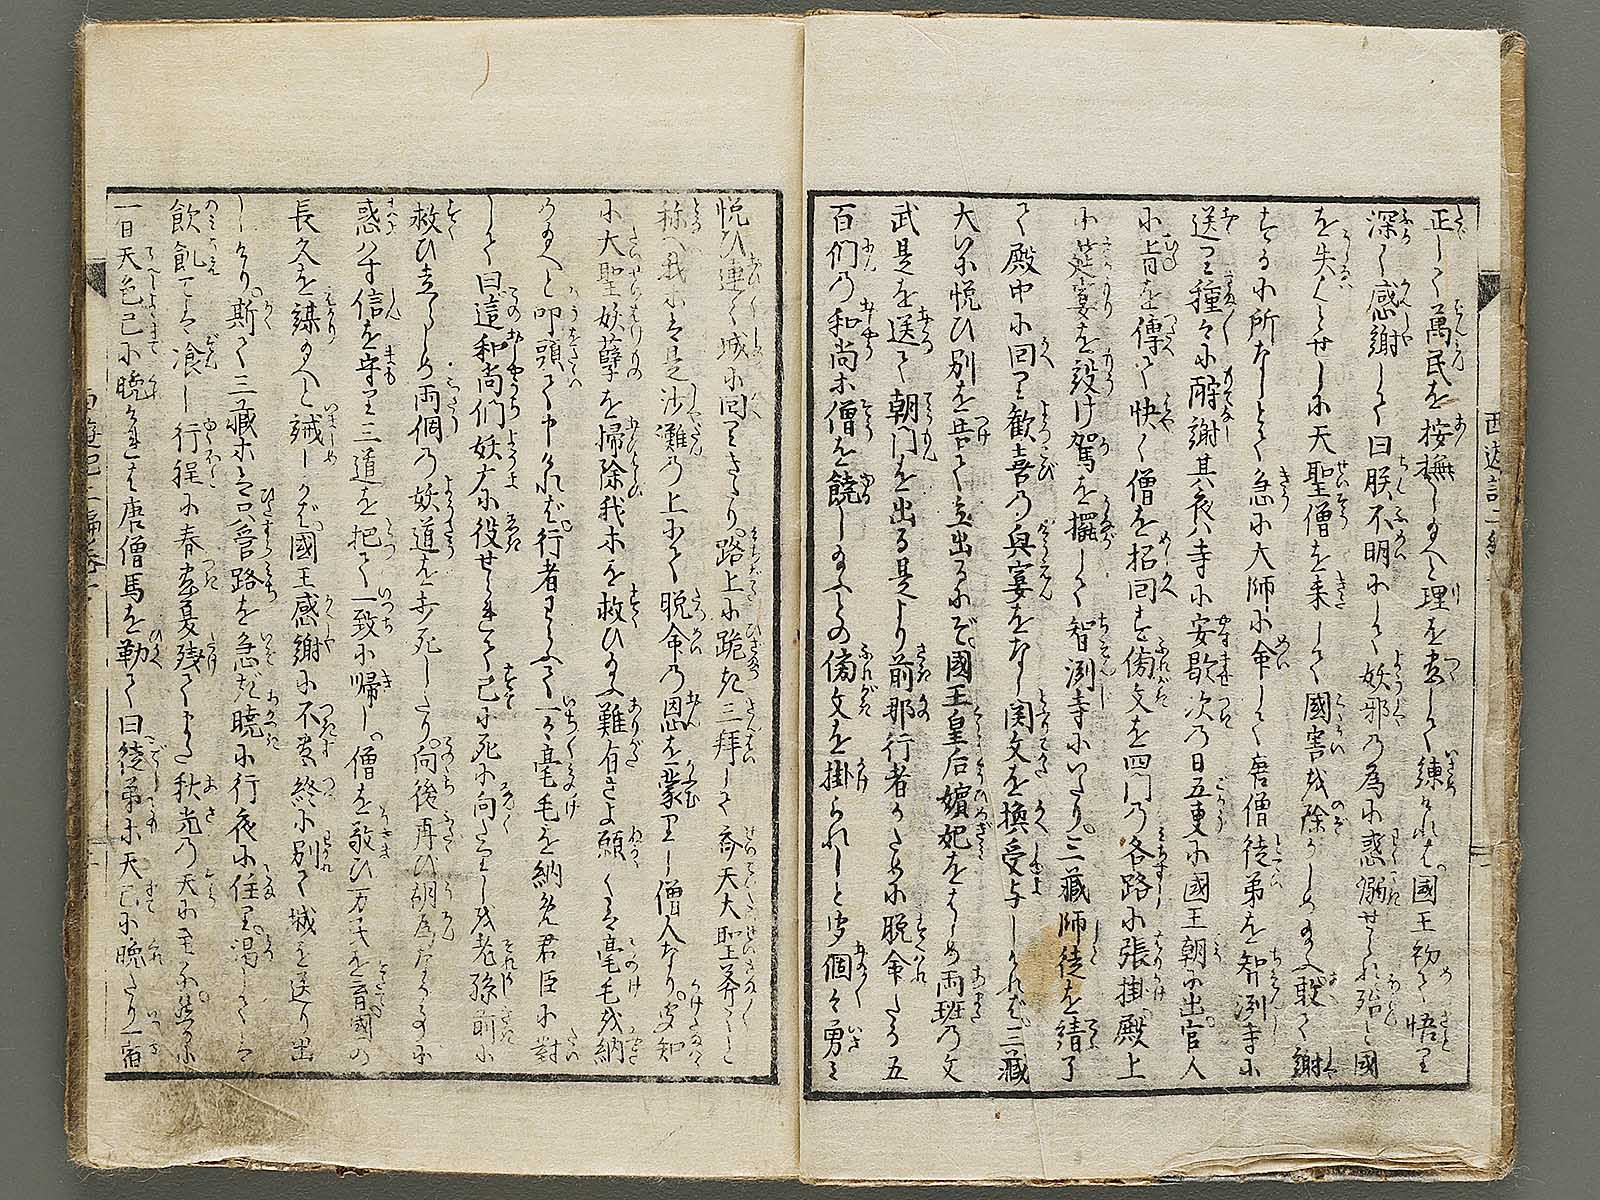 正しく萬民を按撫し給へと理を尽して練けれは國王初て悟り
深く感謝して曰朕不明にして妖邪の為に惑溺せられ殆と國
を失んとせしに天聖僧を来して國害を除かしめ給ふ敢て謝
するに所なしとて急に大師に命して唐僧徒弟を智渕寺に
送り種々に酧謝其夜ハ寺に安歇次の日五更に國王朝に出官人
に旨を傳て快く僧を招回す傍文を四門の各路に張掛殿上
に莚宴を設け駕を擺して智渕寺にいたり三藏師徒を請了
て殿中に回り歓喜の真宴をなし関文を換受与しけれバ三藏
大に悦ひ別を告て立出るにぞ國王皇后嬪妃をはしめ両班の文
武是を送て朝門を出る是より前那行者かために脱命たる五
百們の和尚ホ僧を饒し給ふとの傍文を掛られしと聞個々勇ミ
悦ひ連て城に回りきたり路上に跪き三拝して斉天大聖爺々と
称へ我ホは是沙灘の上にて脱命の恩を蒙りし僧人なり
に大聖妖孽を掃除我ホを救ひ給ふ難有さよ願くは毫毛を納
め給へと叩頭て申けれバ行者わらふて一々毫毛を納免君臣に對
して曰這和尚們妖方に役せられて已に死に向たりしを老孫前に
救ひ走らしめ両個の妖道を打死したり向後再び胡為なる事に
惑ハす信を守り三道を把て一致に帰し僧を敬ひ万民を育國の
長久を謀給へと誡しかバ國王感謝に不尽終に別て城を送り出
しけり斯て三藏ホは只管路を急ぎ暁に行夜に住り渇しては
飲飢ては飡し行程に春尽夏残てまた秋光の天に至
一日天色已に晩けれは唐僧馬を勒て曰徒弟ホ天已に晩たり一宿